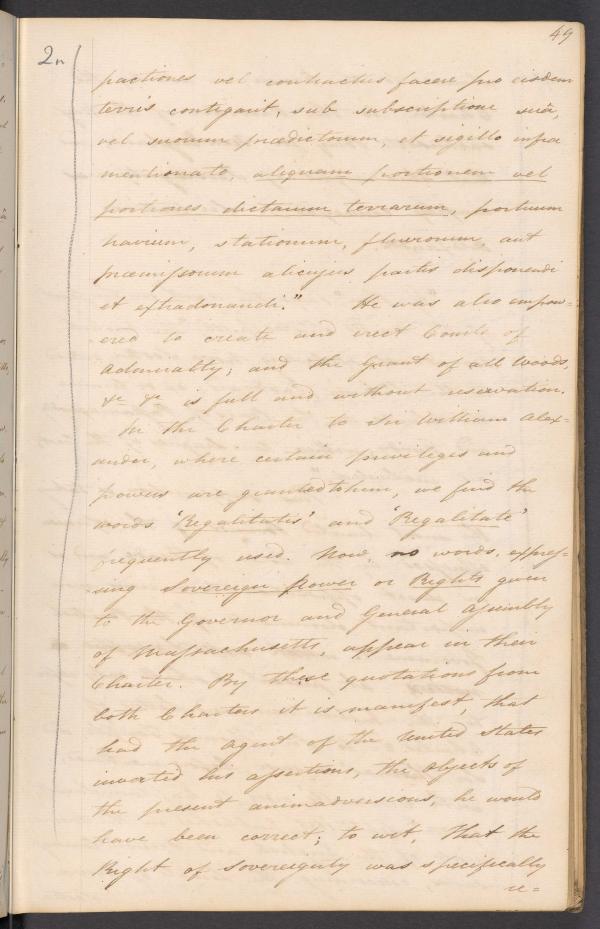 49
2n
pactiones vel contractus facere pro eisdem
terris contigerit, sub subscriptione suâ,
vel suorum prædictorum, et sigillo infra
mentionato, aliquam portionem vel
portiones dictarum terrarum, portuum
navium, stationum, fluviorum, aut
præmissorum alicujus partis disponendi
et extradonandi." He was also empow=
ered to create and erect Courts of
Admiralty; and the Grant of all Woods,
&c &c is full and without reservation.
In the Charter to Sir William Alex=
ander, where certain privileges and
powers are granted to him, we find the
words 'Regalitatis' and 'Regalitate'
frequently used. Now, no words, expres=
sing Sovereign power or Rights given
to the Governor and General Assembly
of Massachusetts, appear in their
Charter. By these quotations from
both Charters it is manifest, that
had the Agent of the United States
inverted his assertions, the objects of
the present animadversions, he would
have been correct; to wit, That the
Right of Sovereignty was specifically
re=